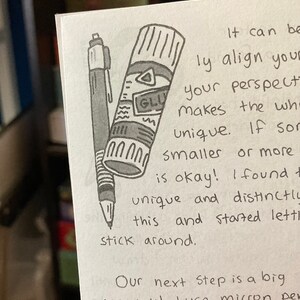 GLU
It can be
ly align your
your perspect
makes the wh
unique. If so
smaller or more
is okay! I found t
unique and distinctly
this and started letti
stick around.
Our next step is a big
micron pen